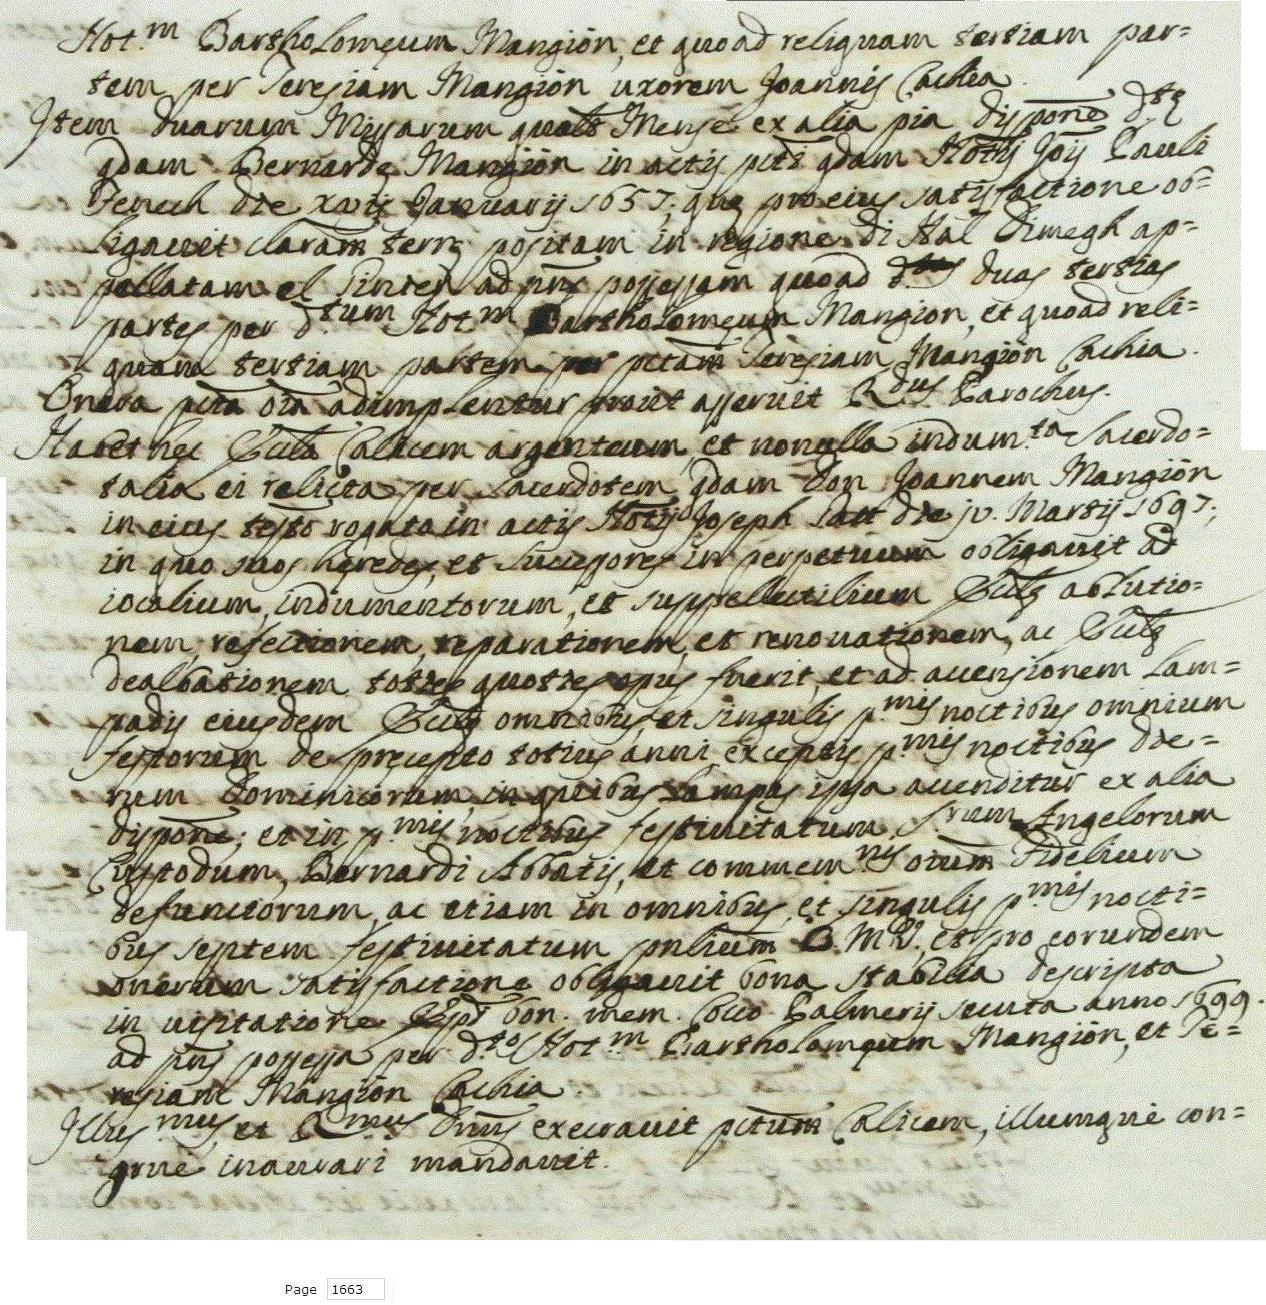 Not.m Bartholomęum Mangion, et quoad reliquam tertiam par=
tem per Teresiam Mangion uxorem Joannis Cachia.
Item duarum Missarum quolt Mense ex alia pia dispone d.tę
qdam Bernardę Mangion in actis pcti qdam Notrij Jois Pauli
Fenech die xvij Januarij 1657; quę pro eius satisfactione ob=
ligavit clavam terrę positam in regione di Hal Dimegh ap=
pellatam el ad pns possessam quoad duas tertias
partes per d.tum Not.m Bartholomęum Mangion, et quoad reli=
quam tertiam partem per pctam Teresiam Mangion Cachia.
Onera pcta oia adimplentur prout asseruit R.dus Parochus.
Habet hęc Eccla Calicem argenteum, et nonulla indum.ta Sacerdo=
talia ei relicta per Sacerdotem qdam Don Joannem Mangion
in eius testo rogato in actis Notrij Joseph Callı die iv. Martij 1697;
in quo suos heredes, et successores in perpetuum obligavit ad
iocalium, indumentorum, et suppellectilium Ecclę ablutio=
nem, refectionem, reparationem, et renovationem, ac Ecclę
dealbationem toties quoties opus fuerit, et ad accensionem Lam=
padis eiusdem Ecclę omnibus, et singulis p.mis noctibus omnium
festorum de precepto totius anni exceptis p.mis noctibus die=
rum Dominicorum, in quibus Lampas ipsa accenditur ex alia
dispone; et in p.mis noctibus festivitatum, S.rum Angelorum
Custodum, Bernardi Abbatis, et commem.nis oium Fidelium
defunctorum, ac etiam in omnibus, et singulis p.mis nocti=
bus septem festivitatum pnlium B. M. V. et pro eorundem
onerum satisfactione obligavit bona stabilia descripta
in visitatione Epi bon. mem. Cocco Palmerij secuta anno 1699.
ad pns possessa per d.to Not.m Bartholomęum Mangion, et Te=
resiam Mangion Cachia
Illus.mus, et R.mus Dnus execravit pctum Calicem, illumque con=
grue inaurari mandavit.
Page 1663